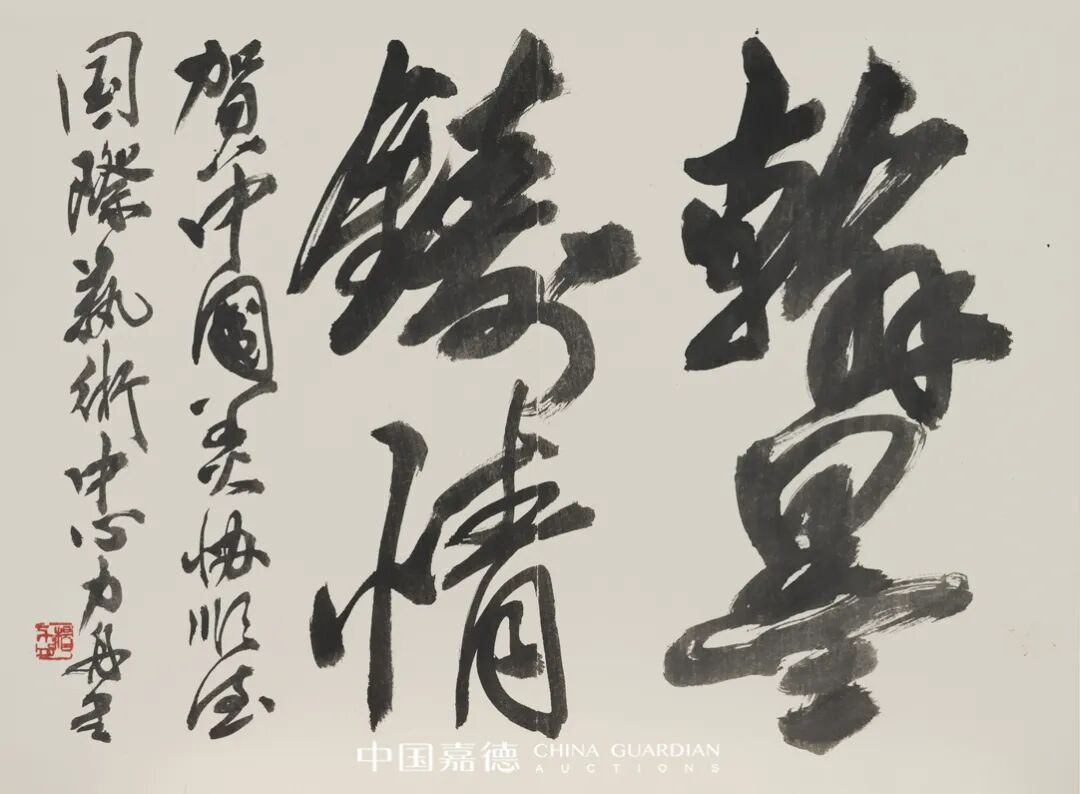 翰墨
鑄情
賀中國美協順德
国際藝術中心力舟
中国嘉德 CHINA GUARDIAN
AUCTIONS